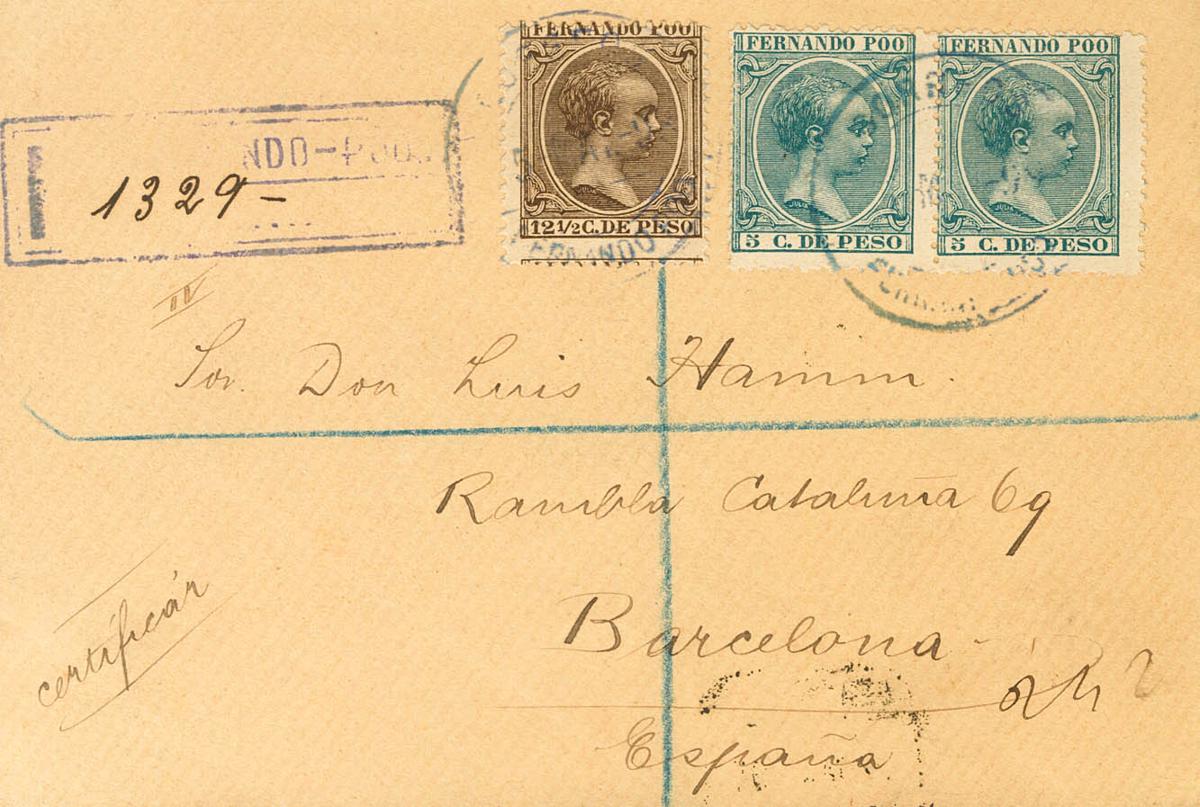 FERNANDO POO
12 1/2 C. DE PESO
FERNANDO POO
5 C. DE PESO
FERNANDO POO
5 C. DE PESO
NDO-POO
1329-
Sor. Don Luis Hamm.
Rambla Cataluña 69
Barcelona
España
certificár